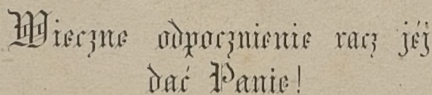 Wieczne odpocznienie racz jéj
dać Panie!